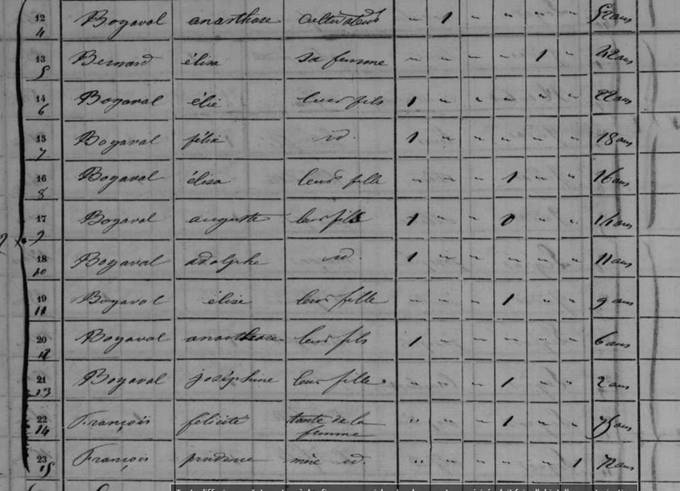 12 4 Bogaval anasthase cultivateur " 1 " " " " 52 ans
13 5 Bernard élise sa femme " " " " 1 " 42 ans
14 6 Bogaval élie leur fils 1 " " " " " 22 ans
15 7 Bogaval félix id. 1 " " " " " 18 ans
16 8 Bogaval élisa leur fille " " " 1 " " 16 ans
17 9 Bogaval auguste leur fils 1 " " " " 14 ans
18 10 Bogaval adolphe id. 1 " " " " " 11 ans
19 11 Bogaval élise leur fille " " " 1 " " 9 ans
20 12 Bogaval anasthase leur fils 1 " " " " " 6 ans
21 13 Bogaval joséphine leur fille " " " 1 " " 2 ans
22 14 François félicité tante de la femme " " " 1 " " 75 ans
23 15 François prudence mère id. " " " " " 1 72 ans